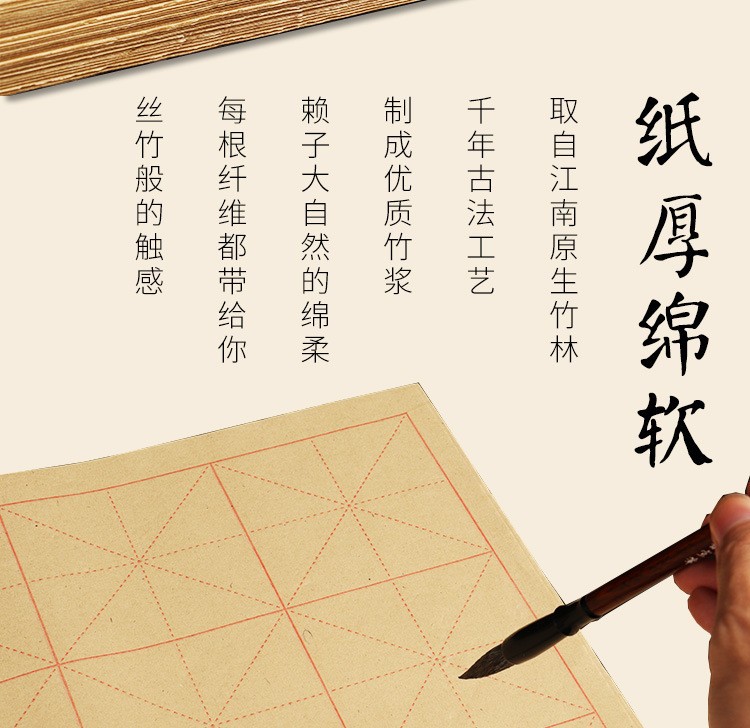 纸厚绵软
取自江南原生竹林
千年古法工艺
制成优质竹浆
赖子大自然的绵柔
每根纤维都带给你
丝竹般的触感